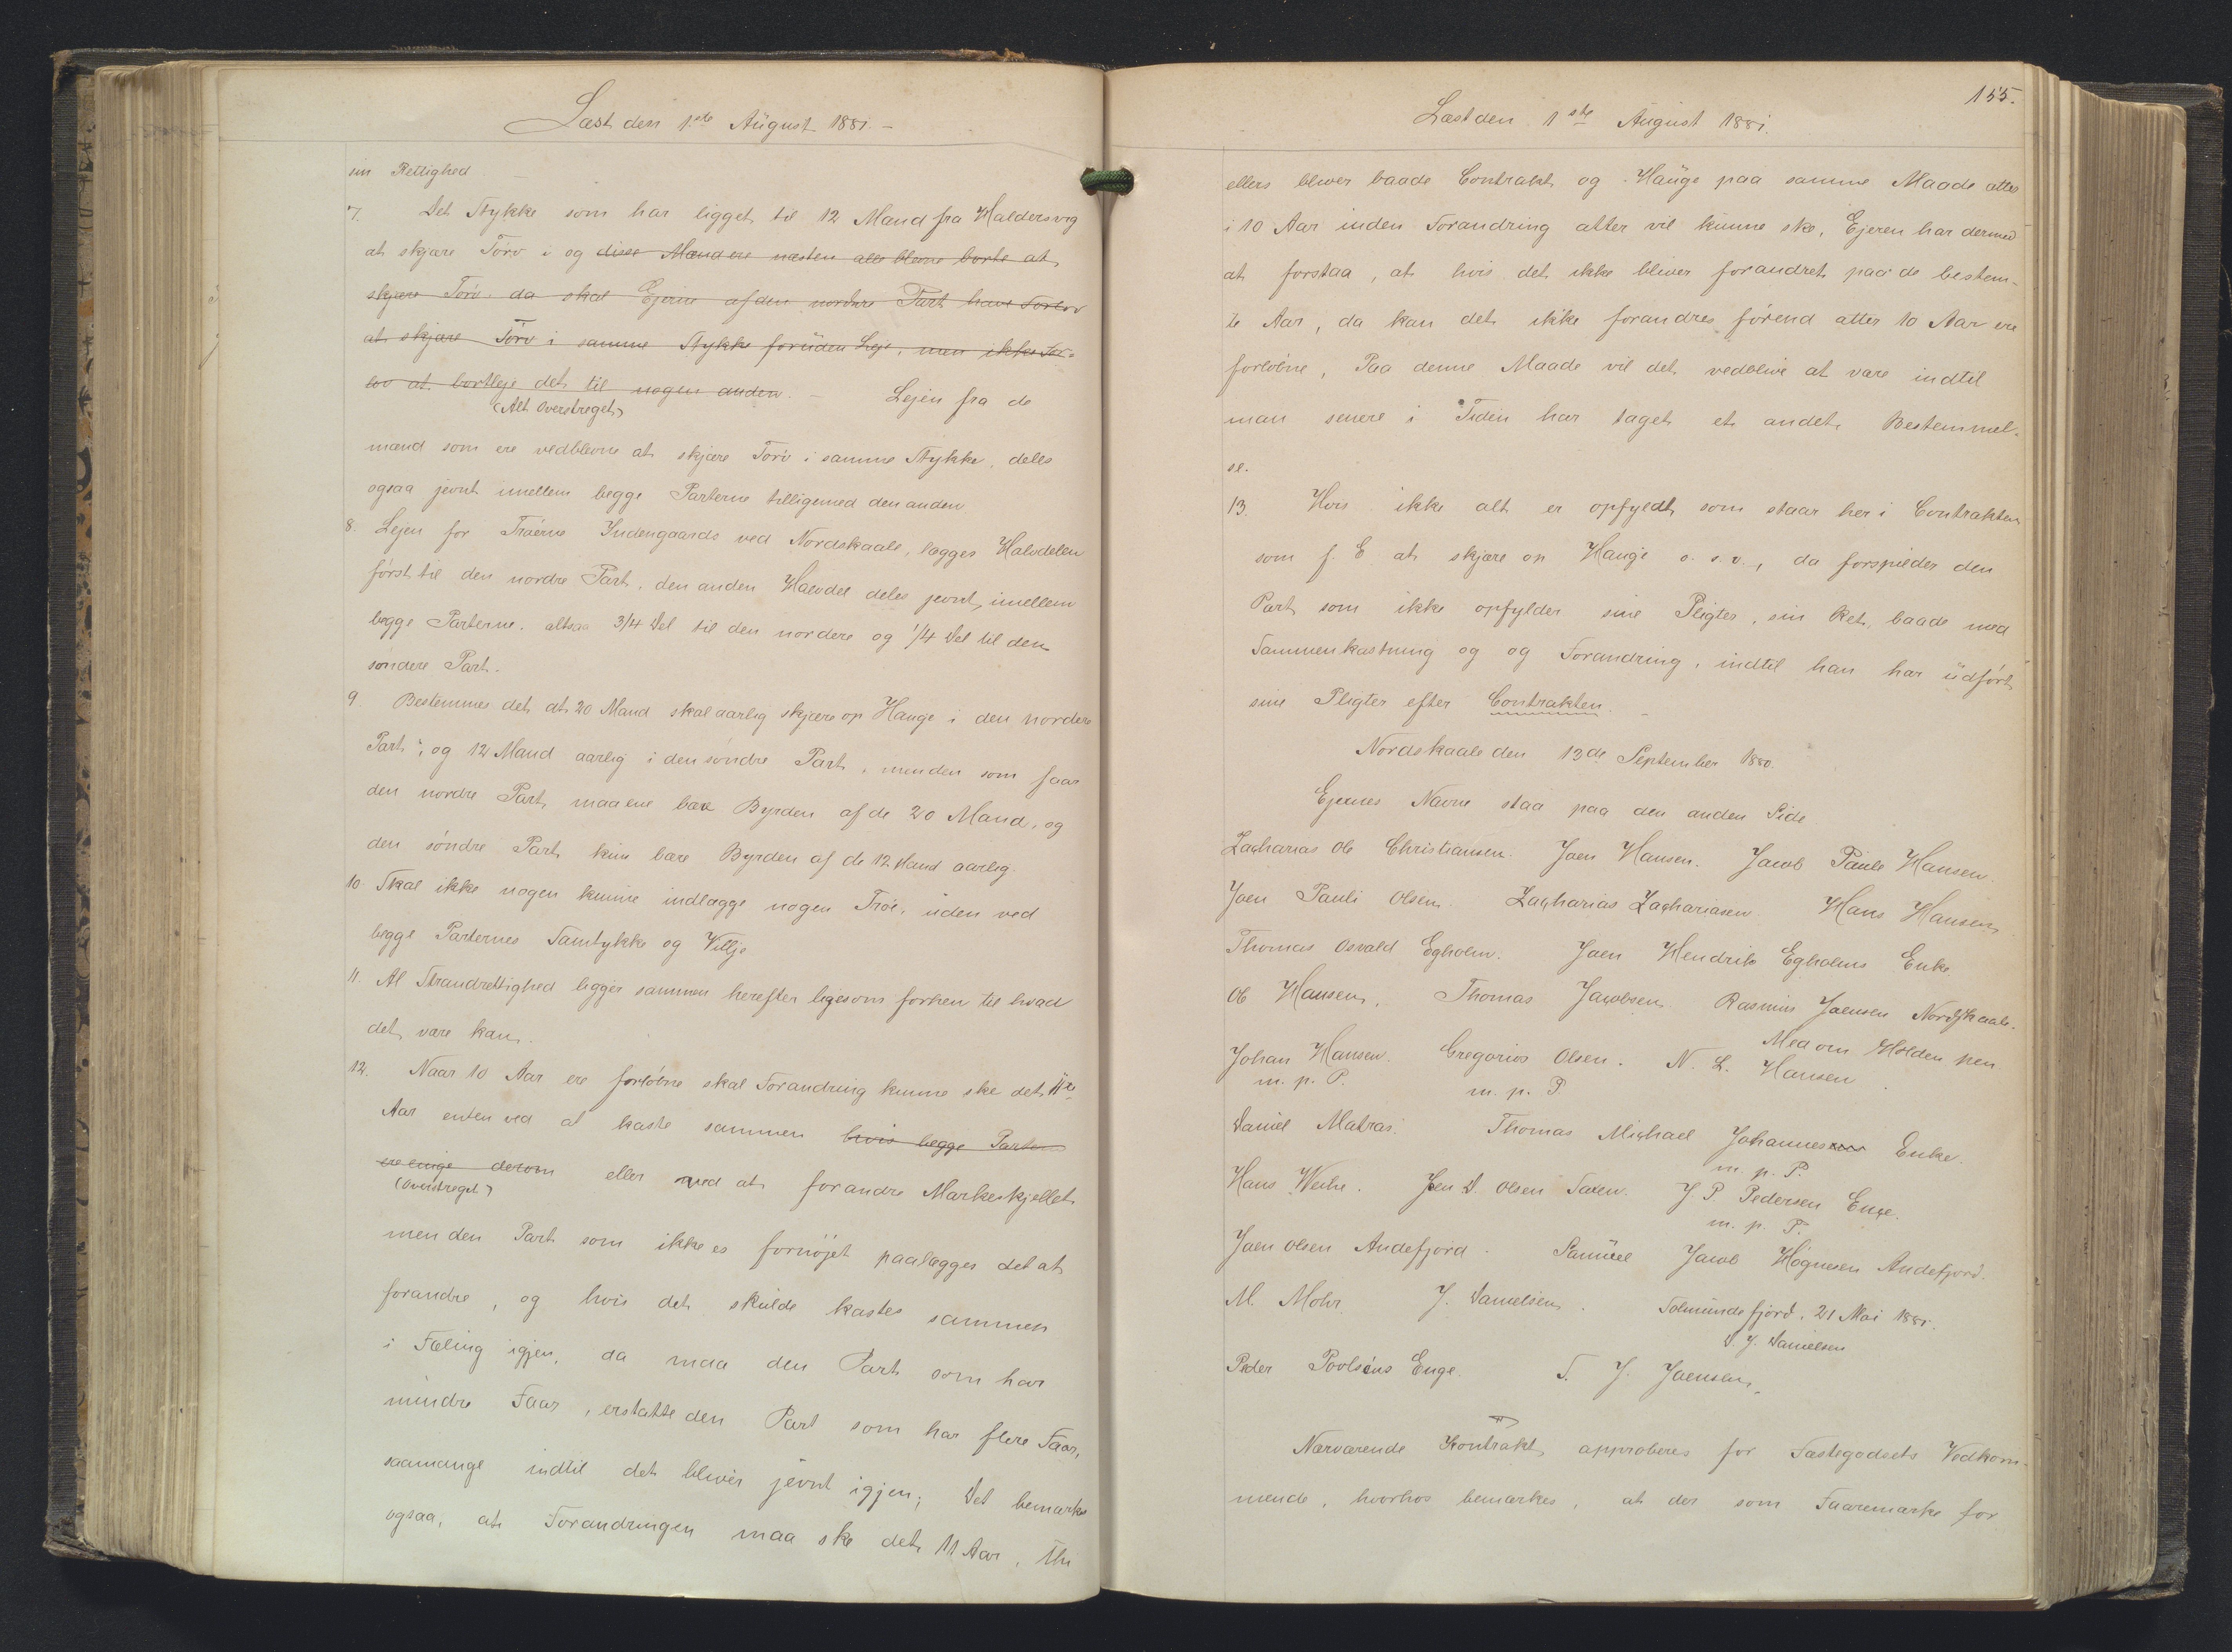 Læst den 1ste August 1881. –
sin Rettighed. –
7. Det Stykke som har ligget til 12 Mænd fra Haldersvig
at skjære Törv i og disse Mænd ere næsten alle blevne borte at
skjære Törv da skal Ejerne af den nordre Part have Forlov
at skjære Törv i samme Stykke foruden Leje, men ikke For-
lov at bortleje det til nogen anden. – Lejen fra de
(Alt Overstreget)
mænd som ere vedblevne at skjære Törv i samme Stykke, deles
ogsaa jevnt imellem begge Parterne tilligemed den anden
8. Lejen for Tröerne Indengaards ved Nordskaale, lægges Halvdelen
först til den nordre Part, den anden Halvdel deles jevnt imellem
begge Parterne, altsaa 3/4 Del til den nordere og 1/4 Del til den
söndere Part.
9. Bestemmes det at 20 Mand skal aarlig skjære op Hauge i den nordere
Part, og 12 Mand aarlig i den söndre Part, men den som faar
den nordre Part, maa ene bære Byrden af de 20 Mand, og
den söndre Part kun bære Byrden af de 12 Mand aarlig.
10. Skal ikke nogen kunne indlægge nogen Tröe, uden ved
begge Parternes Samtykke og Villje
11. Al Strandrettighed ligger sammen herefter ligesom forhen til hvad
det være kan.
12. Naar 10 Aar ere forlöbne skal Forandring kunne ske det 11te
Aar enten ved at kaste sammen hvis begge Parter
ere enige derom eller ved at forandre Markeskjellet
(Overstreget)
men den Part som ikke es fornöjet paalægges det at
forandre, og hvis det skulde kastes sammen
i Fæling igjen, da maa den Part som har
mindre Faar, erstatte den Part som har flere Faar,
saamange indtil det bliver jevnt igjen; Det bemærkes
ogsaa, at Forandringen maa ske det 11 Aar, thi
155.
Læst den 1ste August 1881.
ellers bliver baade Contrakt og Hauge paa samme Maade atter
i 10 Aar inden Forandring atter vil kunne ske, Ejeren har dermed
at forstaa, at hvis det ikke bliver forandret paa de bestem-
te Aar, da kan det ikke forandres förend atter 10 Aar ere
forlöbne, Paa denne Maade vil det vedblive at være indtil
man senere i Tiden har taget et andet Bestemmel-
se.
13. Hvis ikke alt er opfyldt som staar her i Contrakten
som f. E at skjære op Hauge o. s. v., da forspilder den
Part som ikke opfylder sine Pligter, sin Ret, baade med
Sammenkastning og og Forandring, indtil han har udfört
sine Pligter efter Contrakten. –
Nordskaale den 13de September 1880.
Ejernes Navne staa paa den anden Side
Zacharias Ole Christiansen. Joen Hansen. Jacob Pauli Hansen.
Joen Pauli Olsen. Zacharias Zachariasen Hans Hansen
Thomas Osvald Egholm. Joen Hendrik Egholms Enke
Ole Hansen. Thomas Jacobsen Rasmus Joensen Nordskaale.
Med om Holden Pen
Johan Hansen. Gregorios Olsen. N. L. Hansen.
m. p. P. m. p. P
Daniel Matras. Thomas Michael Johannesens Enke.
m. p. P.
Hans Weihe. Joen D. Olsen Saxen. J. P. Pedersen Enge.
m. p. P.
Joen Olsen Andefjord. Samuel Jacob Högnesen Andefjord.
M. Mohr. J. Danielsen. Selmundefjord, 21 Mai 1881.
D. J. Danielsen
Peder Poulsens Enge. S. J. Joensen
Nærværende Kontrakt approberes for Fæstegodsets Vedkom-
mende, hvorhos bemærkes, at der som Faaremærke for